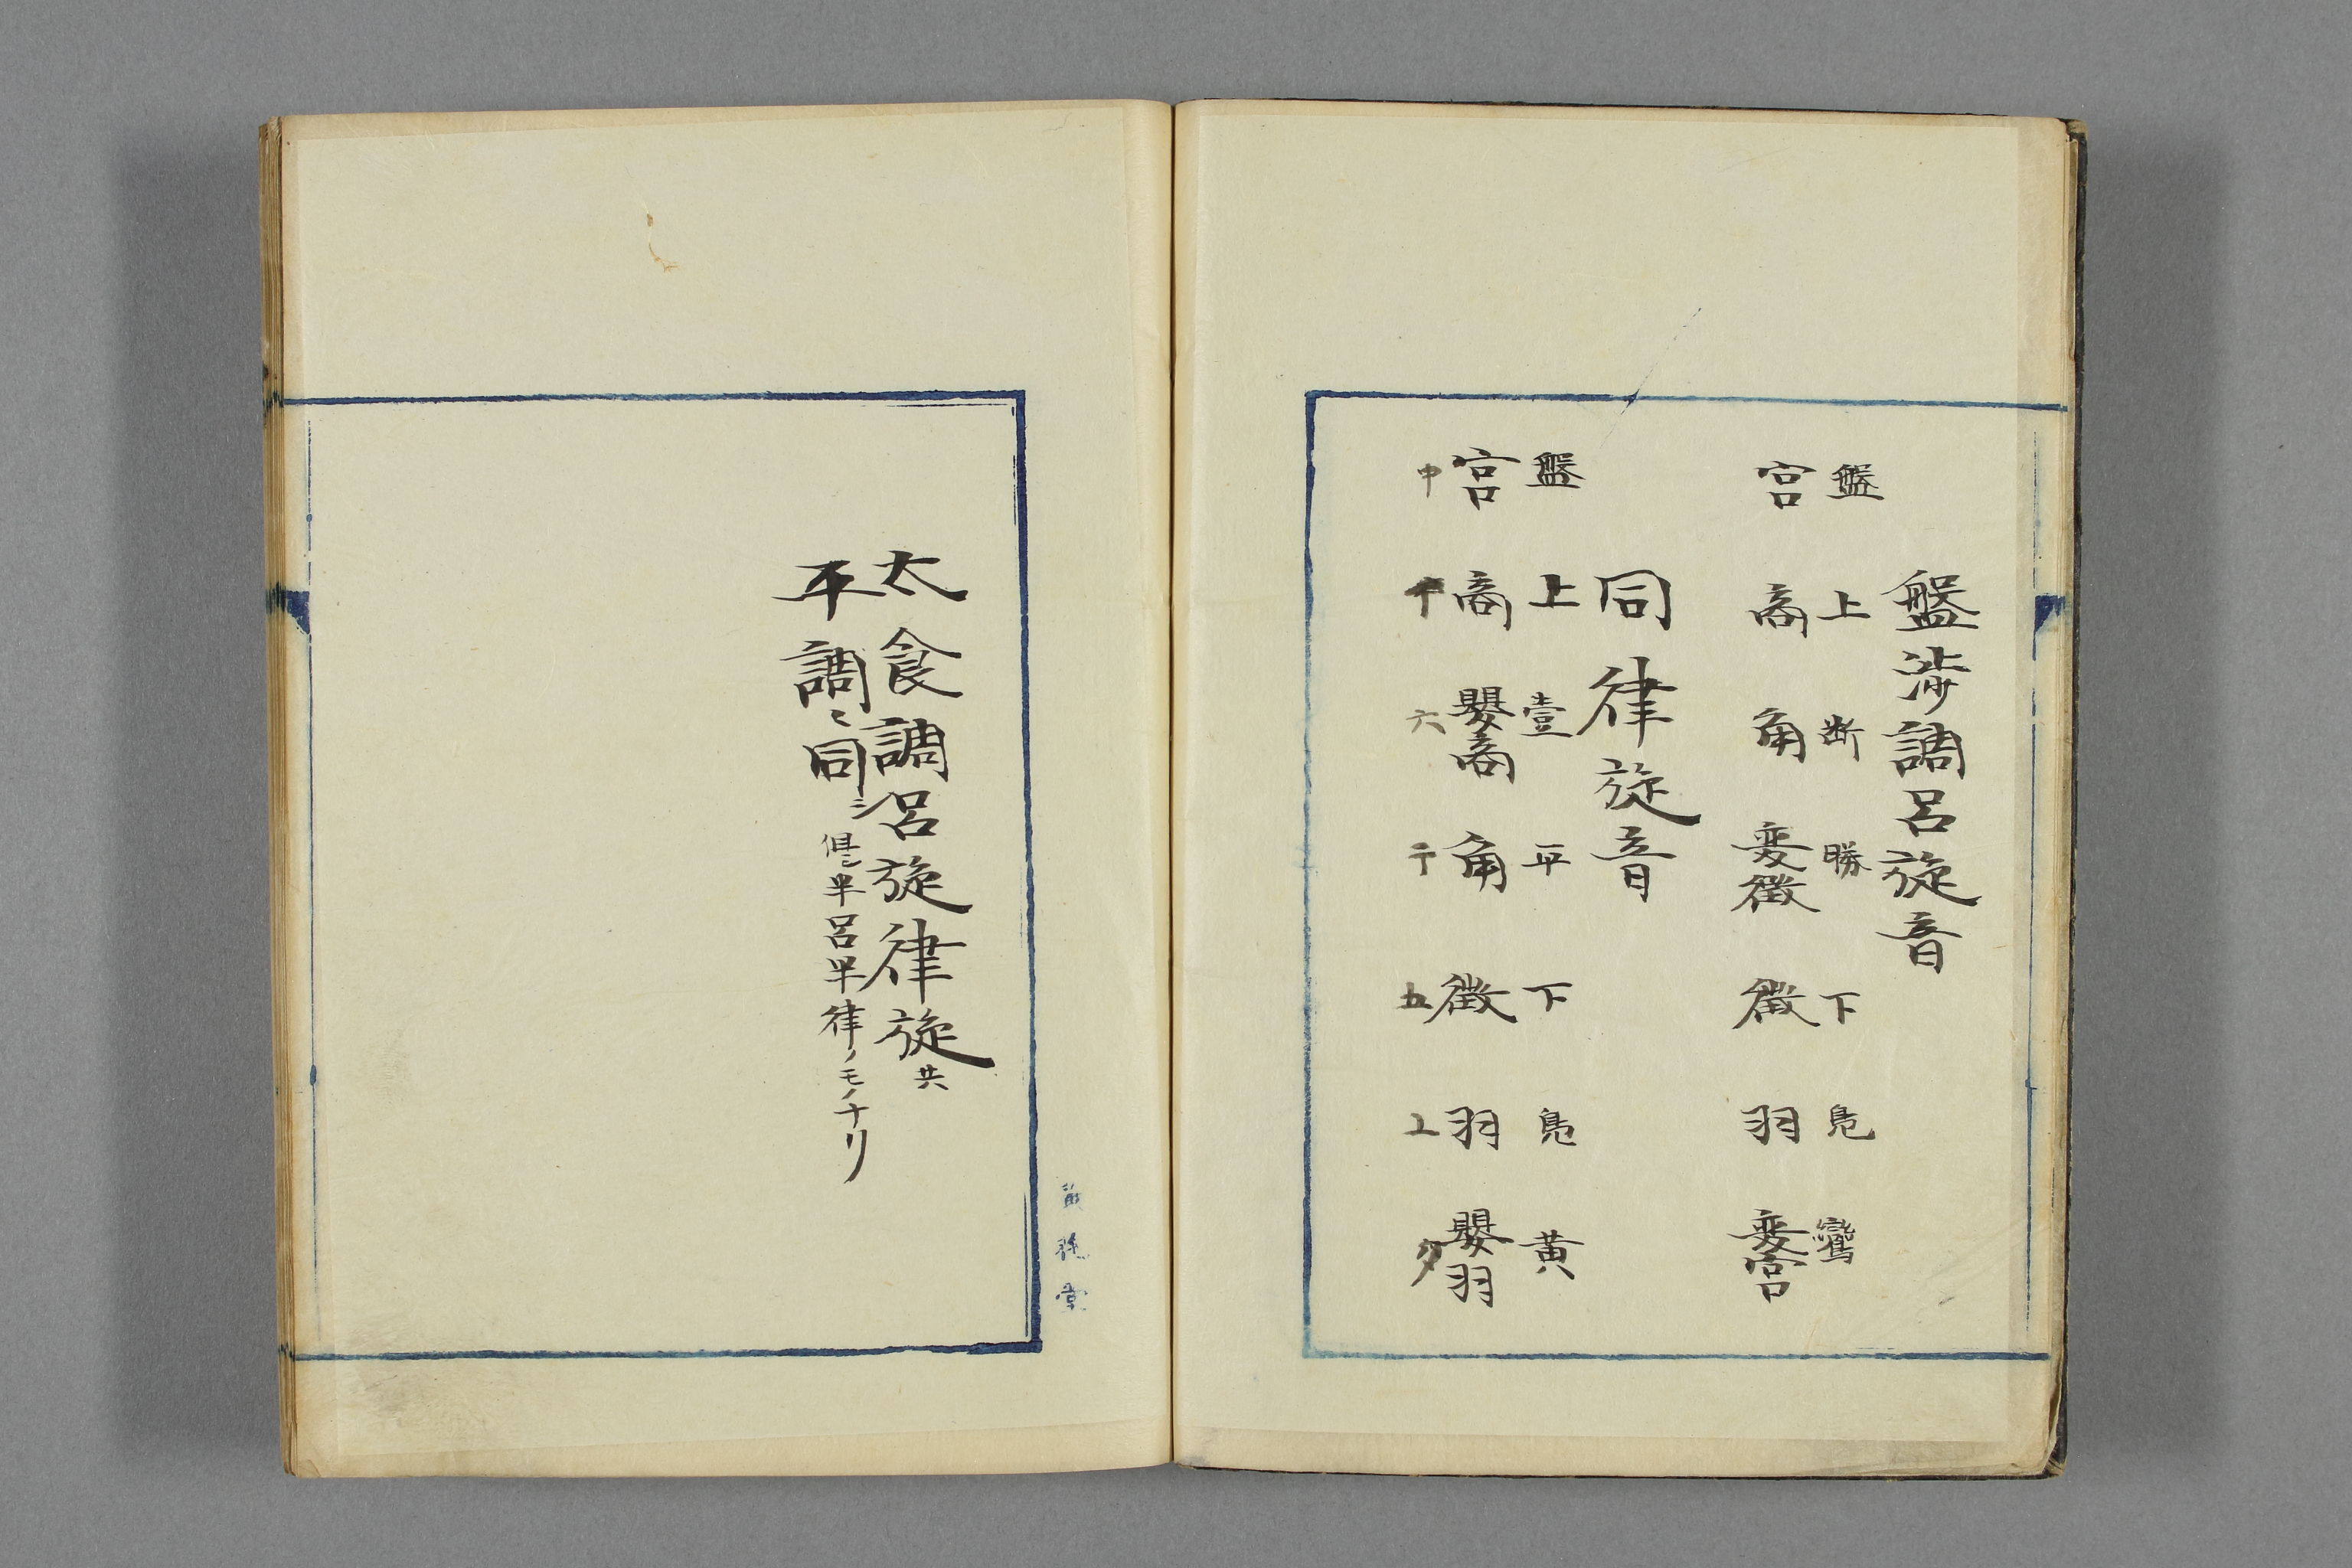 盤渉調呂旋音
盤 上 断 勝 下 鳧 鸞
宮 商 角 変徴 徴 羽 変宮
同律旋音
盤 上 壹 平 下 鳧 黄
宮 商 嬰商 角 徴 羽 嬰羽
中 六 五 夕
太食調呂旋律旋共
平調ニ同シ但シ半呂半律ノモノナリ
堂